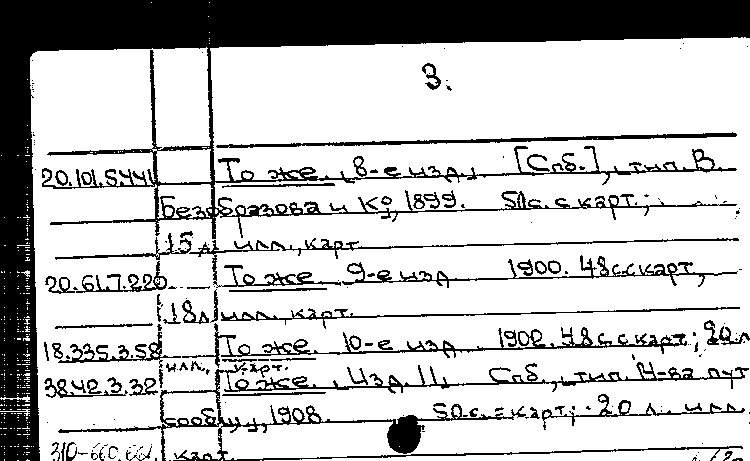 3.
20.101.5.441 То же. 8-е изд. [Спб.], тип. В.
Безобразова и К°, 1899. 51с. с карт.;
15 л. илл., карт.
20.61.7.220 То же. 9-е изд 1900. 48с.с карт,
18л илл., карт.
18.335.3.58 То же. 10-е изд. 1902. 48с.с карт; 20 л
илл., карт.
38.42.3.32 То же. Изд. 11, Спб., тип. М-ва пут
сообщ., 1908. 50с. с карт; 20 л. илл
карт.